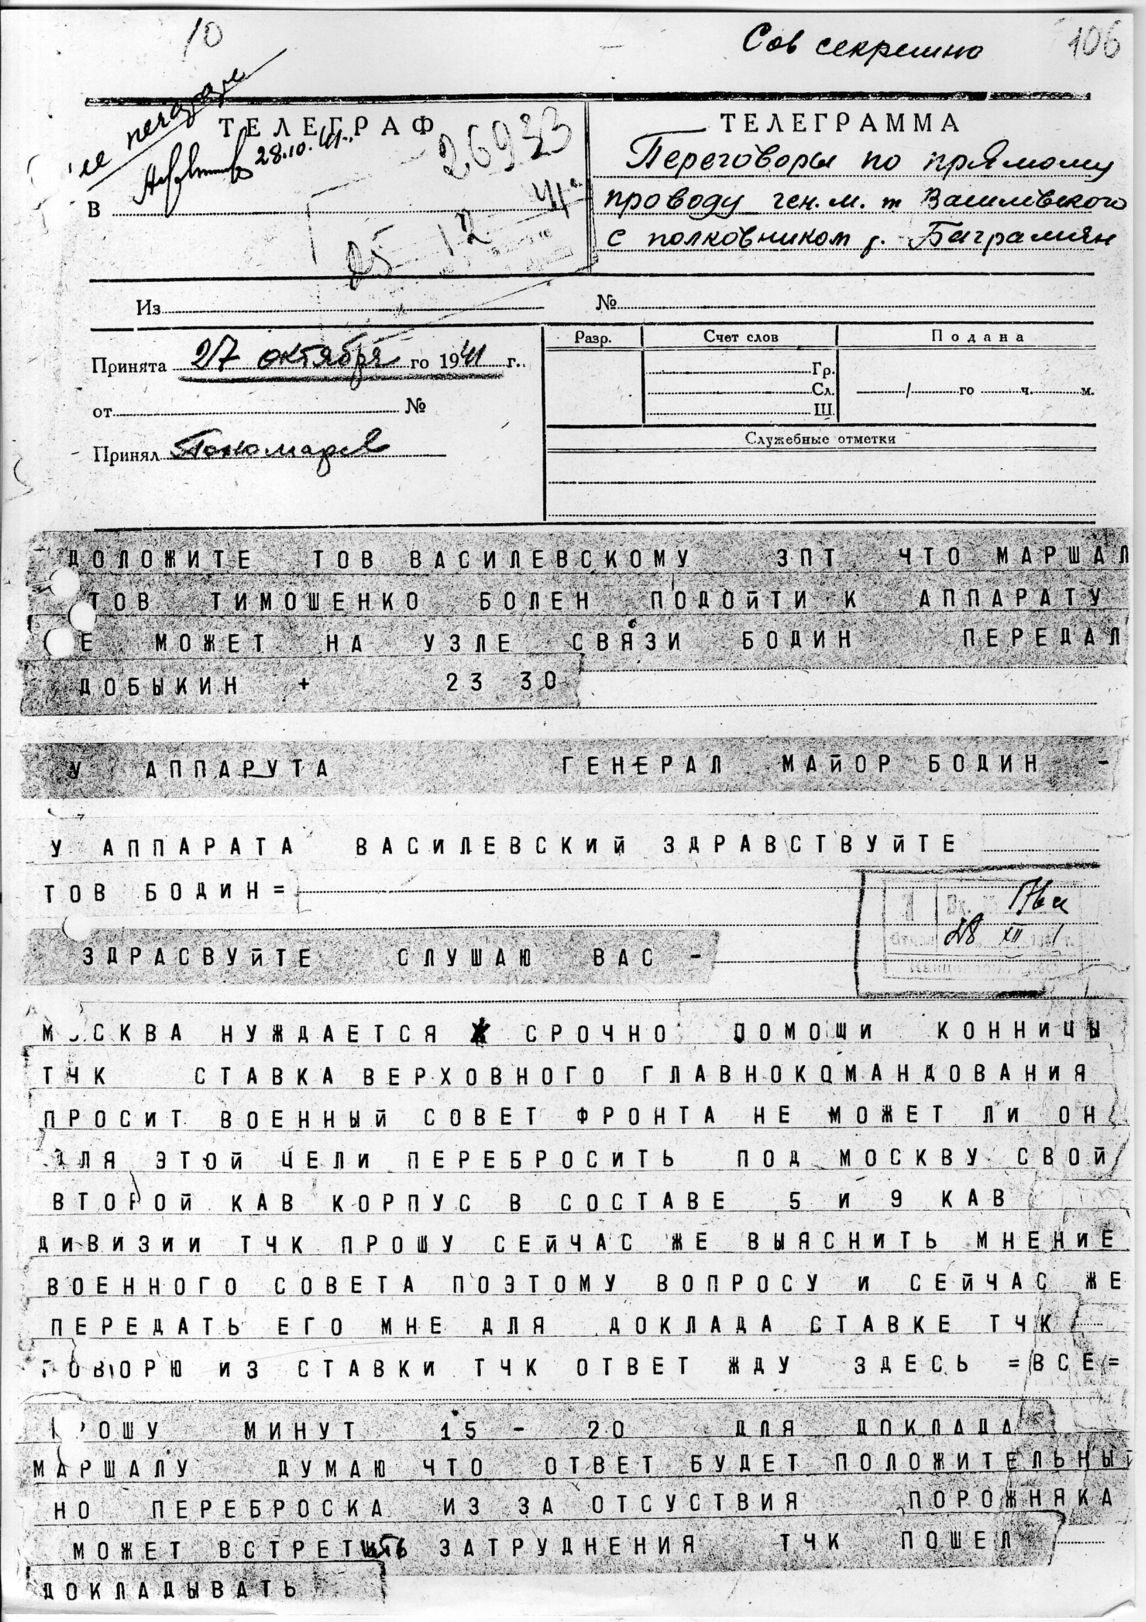 10
Сов секретно 106
не печатать
28.10.41г.
ТЕЛЕГРАФ
26933
25 12 41г
В
ТЕЛЕГРАММА
Переговоры по прямому
проводу ген.м. т Василевского
с полковником г. Баграмян
Из №
Принята 27 октября го 1941 г.
от №
Принял Пономарев
Разр. Счет слов Подана
Гр.
Сл. / го ч. м.
Ш.
Служебные отметки
ДОЛОЖИТЕ ТОВ ВАСИЛЕВСКОМУ ЗПТ ЧТО МАРШАЛ
ТОВ ТИМОШЕНКО БОЛЕН ПОДОЙТИ К АППАРАТУ
Е МОЖЕТ НА УЗЛЕ СВЯЗИ БОДИН ПЕРЕДАЛ
ДОБЫКИН + 23 30
У АППАРУТА ГЕНЕРАЛ МАЙОР БОДИН -
У АППАРАТА ВАСИЛЕВСКИЙ ЗДРАВСТВУЙТЕ
ТОВ БОДИН=
Вх.
28 XII
ЗДРАСВУЙТЕ СЛУШАЮ ВАС -
МОСКВА НУЖДАЕТСЯ Ж СРОЧНО ПОМОЩИ КОННИЦЫ
ТЧК СТАВКА ВЕРХОВНОГО ГЛАВНОКОМАНДОВАНИЯ
ПРОСИТ ВОЕННЫЙ СОВЕТ ФРОНТА НЕ МОЖЕТ ЛИ ОН
ДЛЯ ЭТОЙ ЦЕЛИ ПЕРЕБРОСИТЬ ПОД МОСКВУ СВОЙ
ВТОРОЙ КАВ КОРПУС В СОСТАВЕ 5 И 9 КАВ
ДИВИЗИИ ТЧК ПРОШУ СЕЙЧАС ЖЕ ВЫЯСНИТЬ МНЕНИЕ
ВОЕННОГО СОВЕТА ПОЭТОМУ ВОПРОСУ И СЕЙЧАС ЖЕ
ПЕРЕДАТЬ ЕГО МНЕ ДЛЯ ДОКЛАДА СТАВКЕ ТЧК
ГОВОРЮ ИЗ СТАВКИ ТЧК ОТВЕТ ЖДУ ЗДЕСЬ =ВСЕ=
ПРОШУ МИНУТ 15 - 20 ДЛЯ ДОКЛАДА
МАРШАЛУ ДУМАЮ ЧТО ОТВЕТ БУДЕТ ПОЛОЖИТЕЛЬНЫЙ
НО ПЕРЕБРОСКА ИЗ ЗА ОТСУСТВИЯ ПОРОЖНЯКА
МОЖЕТ ВСТРЕТИТЬ ЗАТРУДНЕНИЯ ТЧК ПОШЕЛ
ДОКЛАДЫВАТЬ